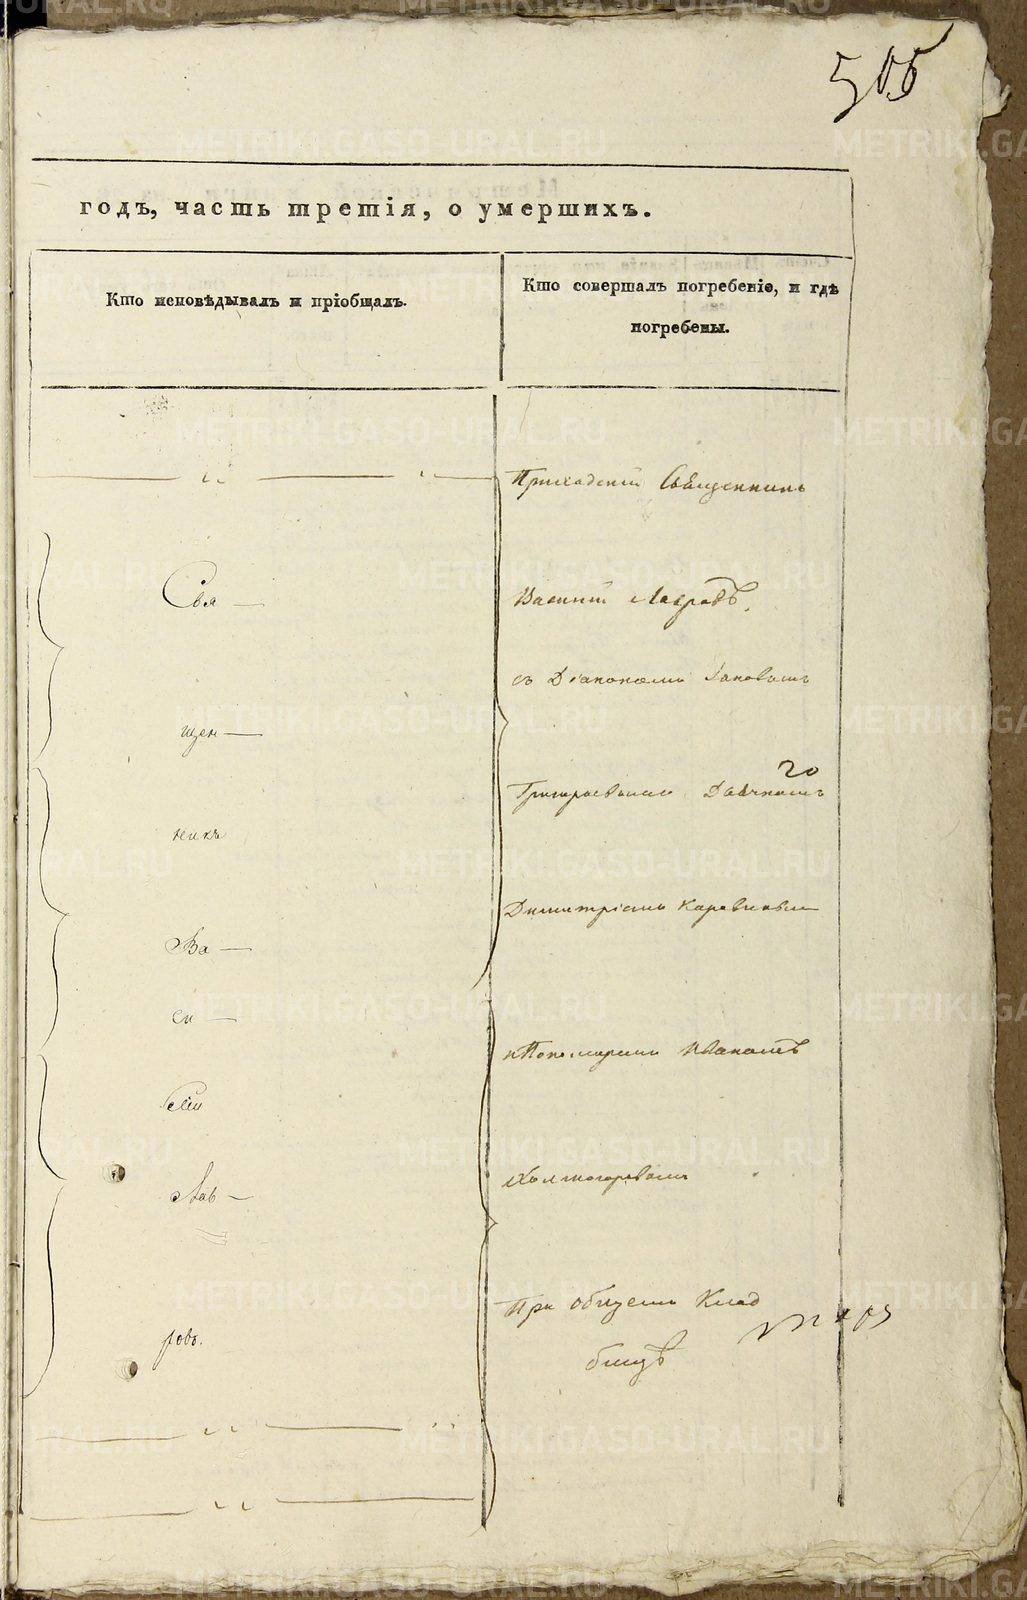 505
годъ, часть третія, о умершихъ.
Кто исповѣдывалъ и пріобщалъ.
Кто совершалъ погребеніе, и гдѣ
погребены.
Приходскій Священникъ
Свя —
Василій Лавровъ,
съ Діакономъ
щен —
Григорьевымъ Дьячкомъ
никъ
Димитріемъ
Ва —
си —
и Пономаремъ Иваномъ
лій
Холмогоровымъ
Лав —
При общемъ Клад
бищѣ
ровъ.
METRIKI.GASO-URAL.RU